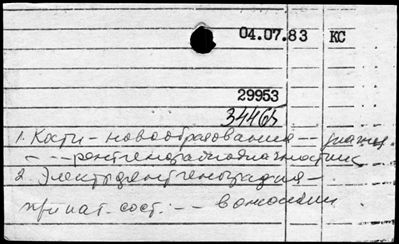 04.07.83 КС
29953
34465
1. Кости – новообразования –– диагн.
– –– рентгенорадиодиагностик
2. Электрорентгенография –
при пат. сост. –– в онкологии